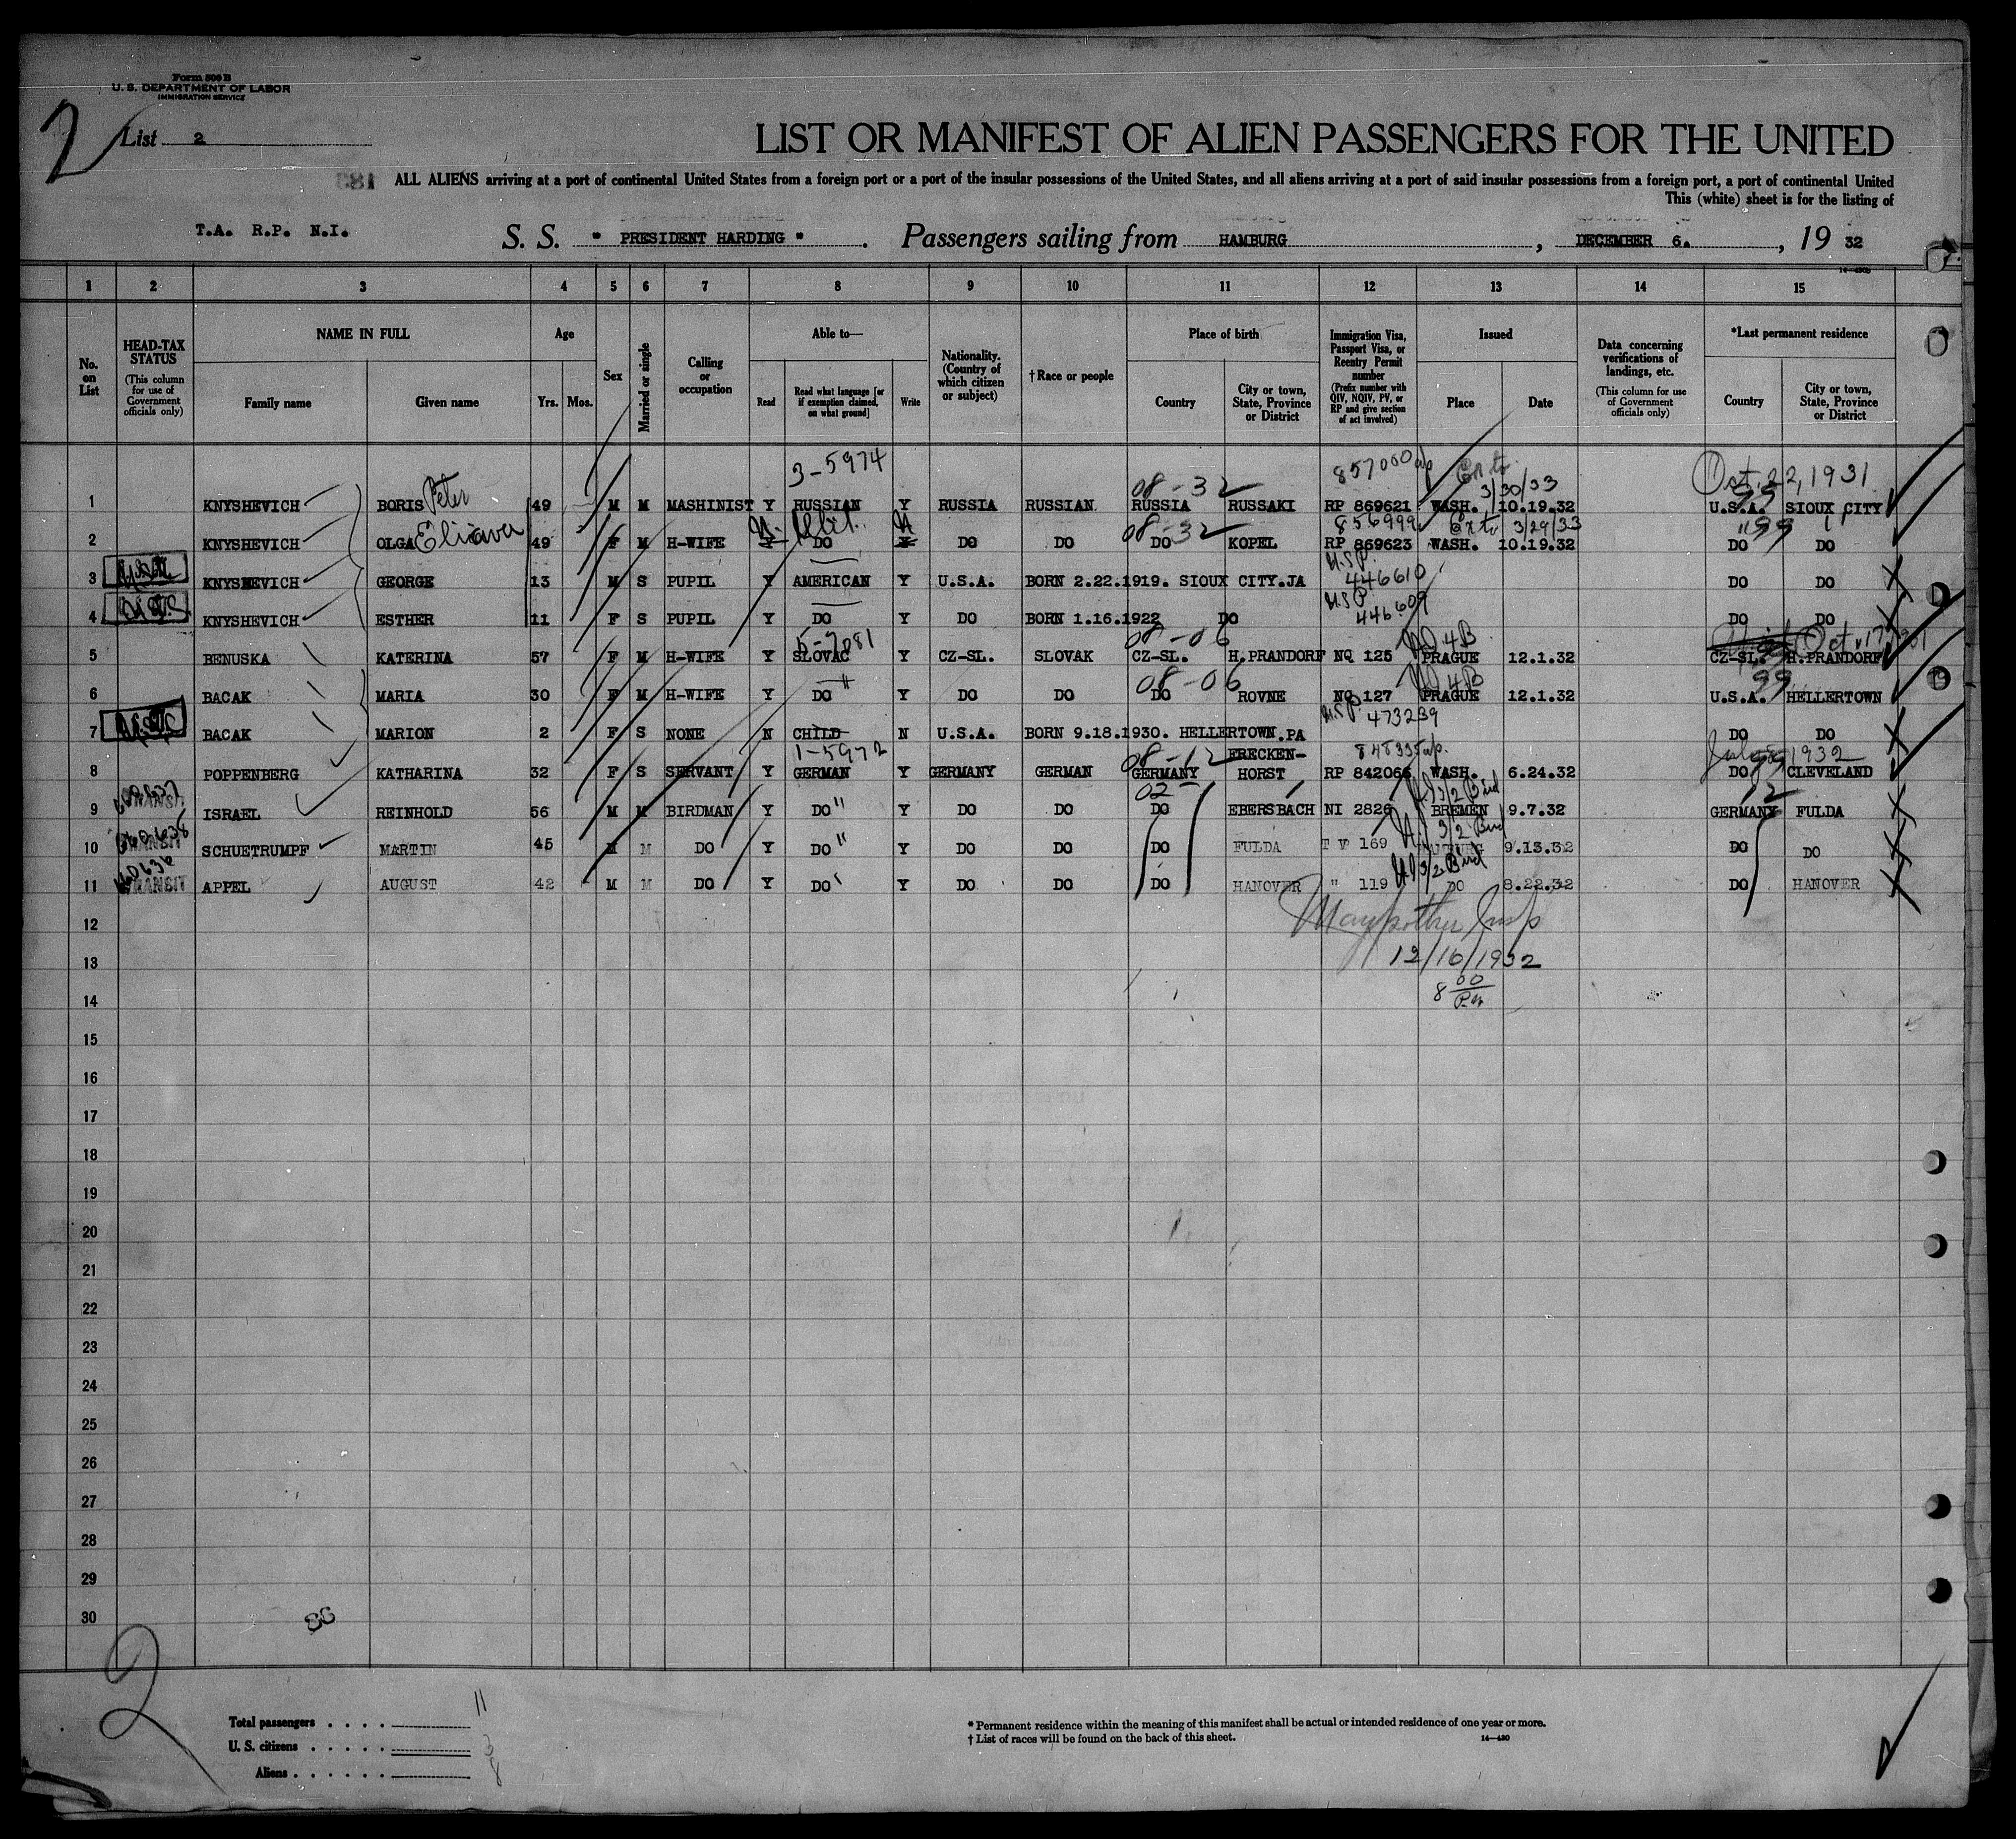 Form 500 B
U. S. DEPARTMENT OF LABOR
IMMIGRATION SERVICE
2
List 2
LIST OR MANIFEST OF ALIEN PASSENGERS FOR THE UNITED
ALL ALIENS arriving at a port of continental United States from a foreign port or a port of the insular possessions of the United States, and all aliens arriving at a port of said insular possessions from a foreign port, a port of continental United
This (white) sheet is for the listing of
T.A. R.P. N.I.
S. S. " PRESIDENT HARDING " . Passengers sailing from HAMBURG , DECEMBER 6. , 19 32
1 2 3 4 5 6 7 8 9 10 11 12 13 14 15
No. on List
HEAD-TAX STATUS
(This column for use of Government officials only)
NAME IN FULL
Family name
Given name
Age
Yrs. Mos.
Sex
Married or single
Calling or occupation
Able to—
Read
Read what language [or if exemption claimed, on what ground]
Write
Nationality. (Country of which citizen or subject)
† Race or people
Place of birth
Country
City or town, State, Province or District
Immigration Visa, Passport Visa, or Reentry Permit number
(Prefix number with QIV, NQIV, PV, or RP and give section of act involved)
Issued
Place
Date
Data concerning verifications of landings, etc.
(This column for use of Government officials only)
*Last permanent residence
Country
City or town, State, Province or District
3-5974 857000 Oct. 22, 1931
08-32 3/30/33 99
1 KNYSHEVICH BORIS Peter 49 M M MASHINIST Y RUSSIAN Y RUSSIA RUSSIAN RUSSIA RUSSAKI RP 869621 WASH. 10.19.32 U.S.A. SIOUX CITY
08-32 856999 3/29/33 99
2 KNYSHEVICH OLGA 49 F M H-WIFE Y DO Y DO DO DO KOPEL RP 869623 WASH. 10.19.32 DO DO
U.S.P. 446610
3 KNYSHEVICH GEORGE 13 M S PUPIL Y AMERICAN Y U.S.A. BORN 2.22.1919. SIOUX CITY.JA DO DO
U.S.P. 446609
4 KNYSHEVICH ESTHER 11 F S PUPIL Y DO Y DO BORN 1.16.1922 DO DO DO
08-06 4B
5 BENUSKA KATERINA 57 F M H-WIFE Y SLOVAC Y CZ-SL. SLOVAK CZ-SL. H.PRANDORF NQ 125 PRAGUE 12.1.32 CZ-SL. H.PRANDORF
08-06 4B 99
6 BACAK MARIA 30 F M H-WIFE Y DO Y DO DO DO ROVNE NQ 127 PRAGUE 12.1.32 U.S.A. HELLERTOWN
U.S.P. 473239
7 BACAK MARION 2 F S NONE N CHILD N U.S.A. BORN 9.18.1930. HELLERTOWN.PA DO DO
1-5972 08-12 1932
8 POPPENBERG KATHARINA 32 F S SERVANT Y GERMAN Y GERMANY GERMAN GERMANY FRECKEN-HORST RP 842066 WASH. 6.24.32 DO CLEVELAND
02 3/2 Bird 12
9 TRANSIT ISRAEL REINHOLD 56 M M BIRDMAN Y DO " Y DO DO DO EBERSBACH NI 2826 BREMEN 9.7.32 GERMANY FULDA
3/2 Bird
10 TRANSIT SCHUETRUMPF MARTIN 45 M M DO Y DO " Y DO DO DO FULDA T V 169 9.13.32 DO DO
3/2 Bird
11 TRANSIT APPEL AUGUST 42 M M DO Y DO Y DO DO DO HANOVER " 119 DO 8.22.32 DO HANOVER
12
13 12/16/1932
14 8 00 P.M.
15
16
17
18
19
20
21
22
23
24
25
26
27
28
29
30
86
2
Total passengers . . . . 11
U. S. citizens . . . . . 3
Aliens . . . . . . 8
* Permanent residence within the meaning of this manifest shall be actual or intended residence of one year or more.
† List of races will be found on the back of this sheet.
14—430